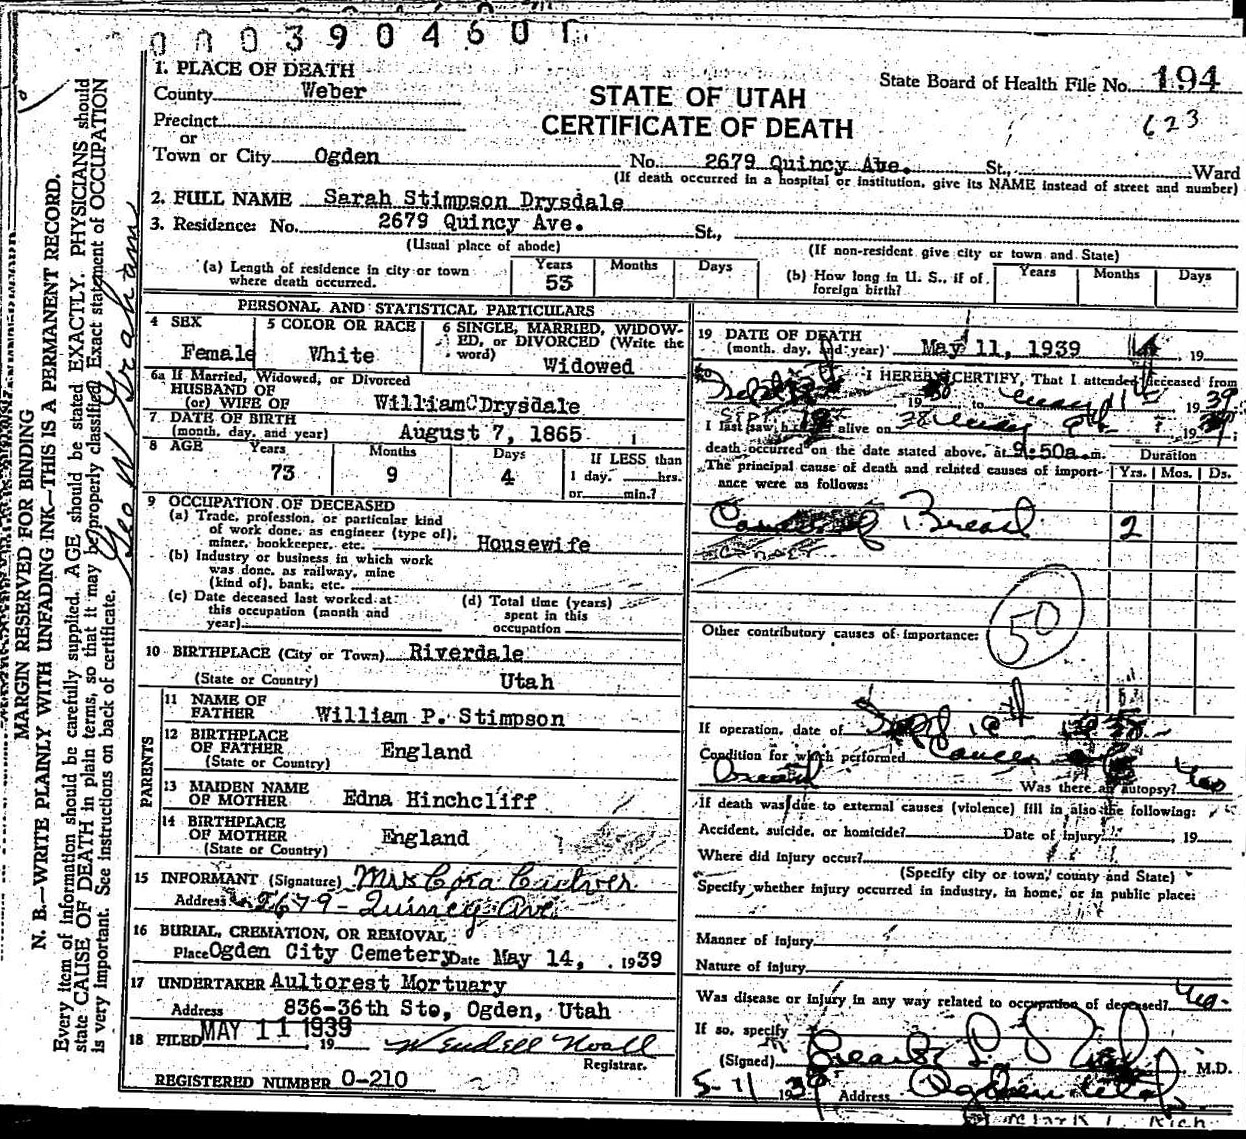 0003904601
1. PLACE OF DEATH
State Board of Health File No. 194
County Weber
STATE OF UTAH
623
Precinct
CERTIFICATE OF DEATH
or
Town or City Ogden No. 2679 Quincy Ave. St., Ward
(If death occurred in a hospital or institution, give its NAME instead of street and number)
2. FULL NAME Sarah Stimpson Drysdale
3. Residence: No. 2679 Quincy Ave. St.,
(Usual place of abode) (If non-resident give city or town and State)
(a) Length of residence in city or town where death occurred. Years 53 Months Days
(b) How long in U. S., if of foreign birth? Years Months Days
PERSONAL AND STATISTICAL PARTICULARS
4 SEX Female
5 COLOR OR RACE White
6 SINGLE, MARRIED, WIDOWED, or DIVORCED (Write the word) Widowed
6a If Married, Widowed, or Divorced
HUSBAND OF
(or) WIFE OF William C Drysdale
7 DATE OF BIRTH
(month, day, and year) August 7, 1865
8 AGE Years 73 Months 9 Days 4 If LESS than 1 day, hrs. or min.?
9 OCCUPATION OF DECEASED
(a) Trade, profession, or particular kind
of work done, as engineer (type of),
miner, bookkeeper, etc. Housewife
(b) Industry or business in which work
was done, as railway, mine
(kind of), bank, etc.
(c) Date deceased last worked at
this occupation (month and
year)
(d) Total time (years)
spent in this
occupation
10 BIRTHPLACE (City or Town) Riverdale
(State or Country) Utah
PARENTS
11 NAME OF
FATHER William P. Stimpson
12 BIRTHPLACE
OF FATHER England
(State or Country)
13 MAIDEN NAME
OF MOTHER Edna Hinchcliff
14 BIRTHPLACE
OF MOTHER England
(State or Country)
15 INFORMANT (Signature) Mrs Cora Culver
Address 2679 - Quincy Ave
16 BURIAL, CREMATION, OR REMOVAL
Place Ogden City Cemetery Date May 14, 1939
17 UNDERTAKER Aultorest Mortuary
Address 836-36th Ste, Ogden, Utah
18 FILED MAY 11 1939 19 Wendell Noall
Registrar.
REGISTERED NUMBER 0-210
19 DATE OF DEATH
(month, day, and year) May 11, 1939 , 19
I HEREBY CERTIFY, That I attended deceased from
19 to 1939
I last saw h alive on 19
death occurred on the date stated above, at 9:50a m. Duration
The principal cause of death and related causes of importance were as follows: Yrs. Mos. Ds.
Cancer of Breast 2
50
Other contributory causes of importance:
If operation, date of
Condition for which performed Cancer of
Breast Was there an autopsy?
If death was due to external causes (violence) fill in also the following:
Accident, suicide, or homicide? Date of Injury , 19
Where did injury occur?
(Specify city or town, county and State)
Specify whether injury occurred in industry, in home, or in public place:
Manner of Injury
Nature of injury
Was disease or injury in any way related to occupation of deceased?
If so, specify
(Signed) M.D.
5-11 1939 Address Ogden Utah
MARGIN RESERVED FOR BINDING
N. B.—WRITE PLAINLY WITH UNFADING INK—THIS IS A PERMANENT RECORD.
Every item of information should be carefully supplied. AGE should be stated EXACTLY. PHYSICIANS should
state CAUSE OF DEATH in plain terms, so that it may be properly classified. Exact statement of OCCUPATION
is very important. See instructions on back of certificate.
Geo W Graham